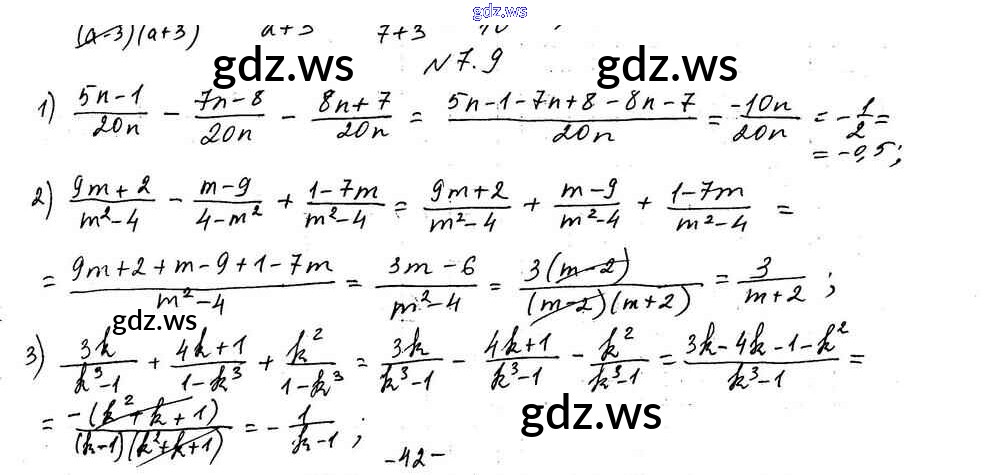 gdz.ws
(a-3)(a+3) a+3 7+3
gdz.ws gdz.ws
N 7.9
1) \frac{5n-1}{20n} - \frac{7n-8}{20n} - \frac{8n+7}{20n} = \frac{5n-1-7n+8-8n-7}{20n} = \frac{-10n}{20n} = -\frac{1}{2} =
= -0,5;
2) \frac{9m+2}{m^2-4} - \frac{m-9}{4-m^2} + \frac{1-7m}{m^2-4} = \frac{9m+2}{m^2-4} + \frac{m-9}{m^2-4} + \frac{1-7m}{m^2-4} =
= \frac{9m+2+m-9+1-7m}{m^2-4} = \frac{3m-6}{m^2-4} = \frac{3(m-2)}{(m-2)(m+2)} = \frac{3}{m+2};
gdz.ws
3) \frac{3k}{k^3-1} + \frac{4k+1}{1-k^3} + \frac{k^2}{1-k^3} = \frac{3k}{k^3-1} - \frac{4k+1}{k^3-1} - \frac{k^2}{k^3-1} = \frac{3k-4k-1-k^2}{k^3-1} =
= \frac{-(k^2+k+1)}{(k-1)(k^2+k+1)} = -\frac{1}{k-1};
gdz.ws
-42-